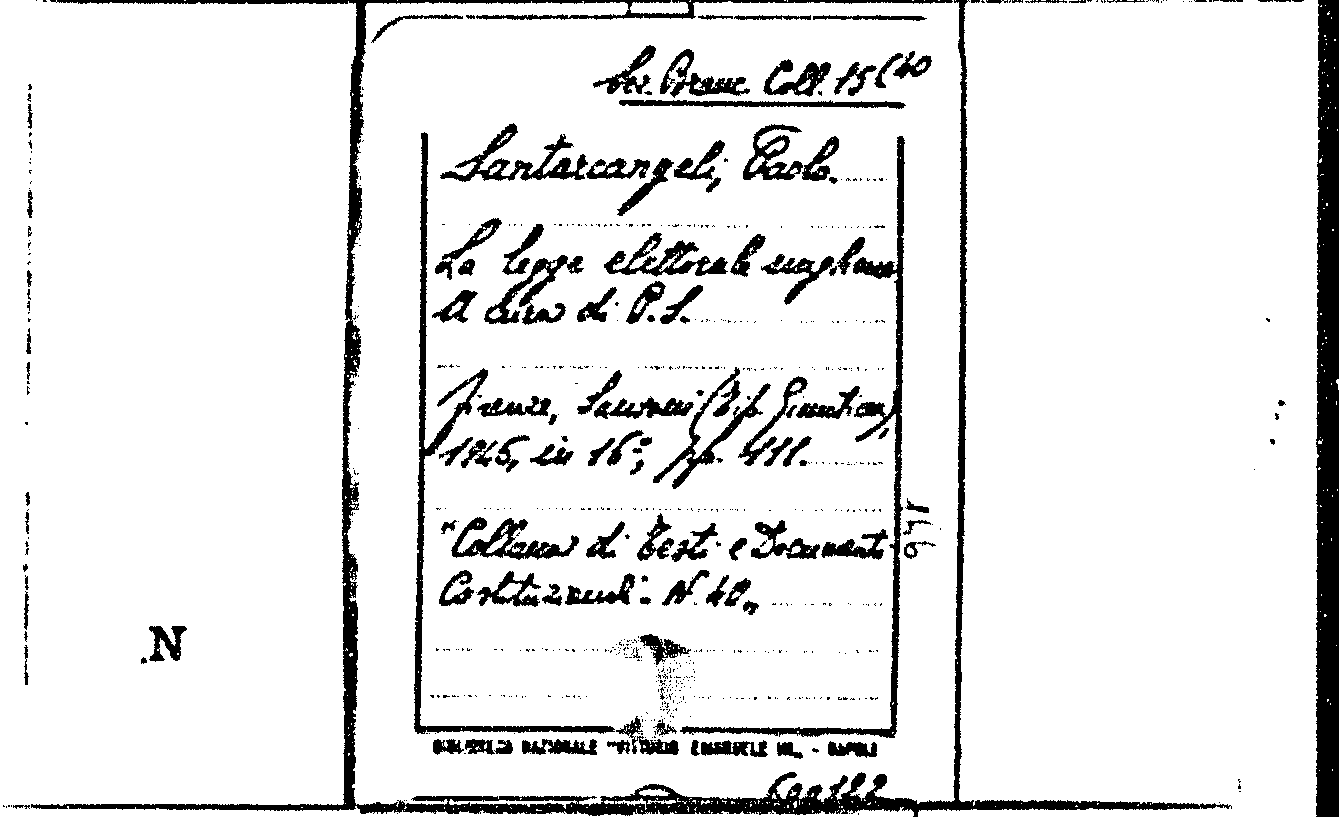 Ser. Branc. Coll. 15 (40
Santarcangeli, Paolo.
La legge elettorale ungherese
A cura di P.S.
Firenze, Sansoni (Tip. Giuntina),
1946, in 16º, pp. 111.
"Collana di Testi e Documenti
Costituzionali". N. 40„
BIBLIOTECA NAZIONALE "VITTORIO EMANUELE III„ - NAPOLI
N